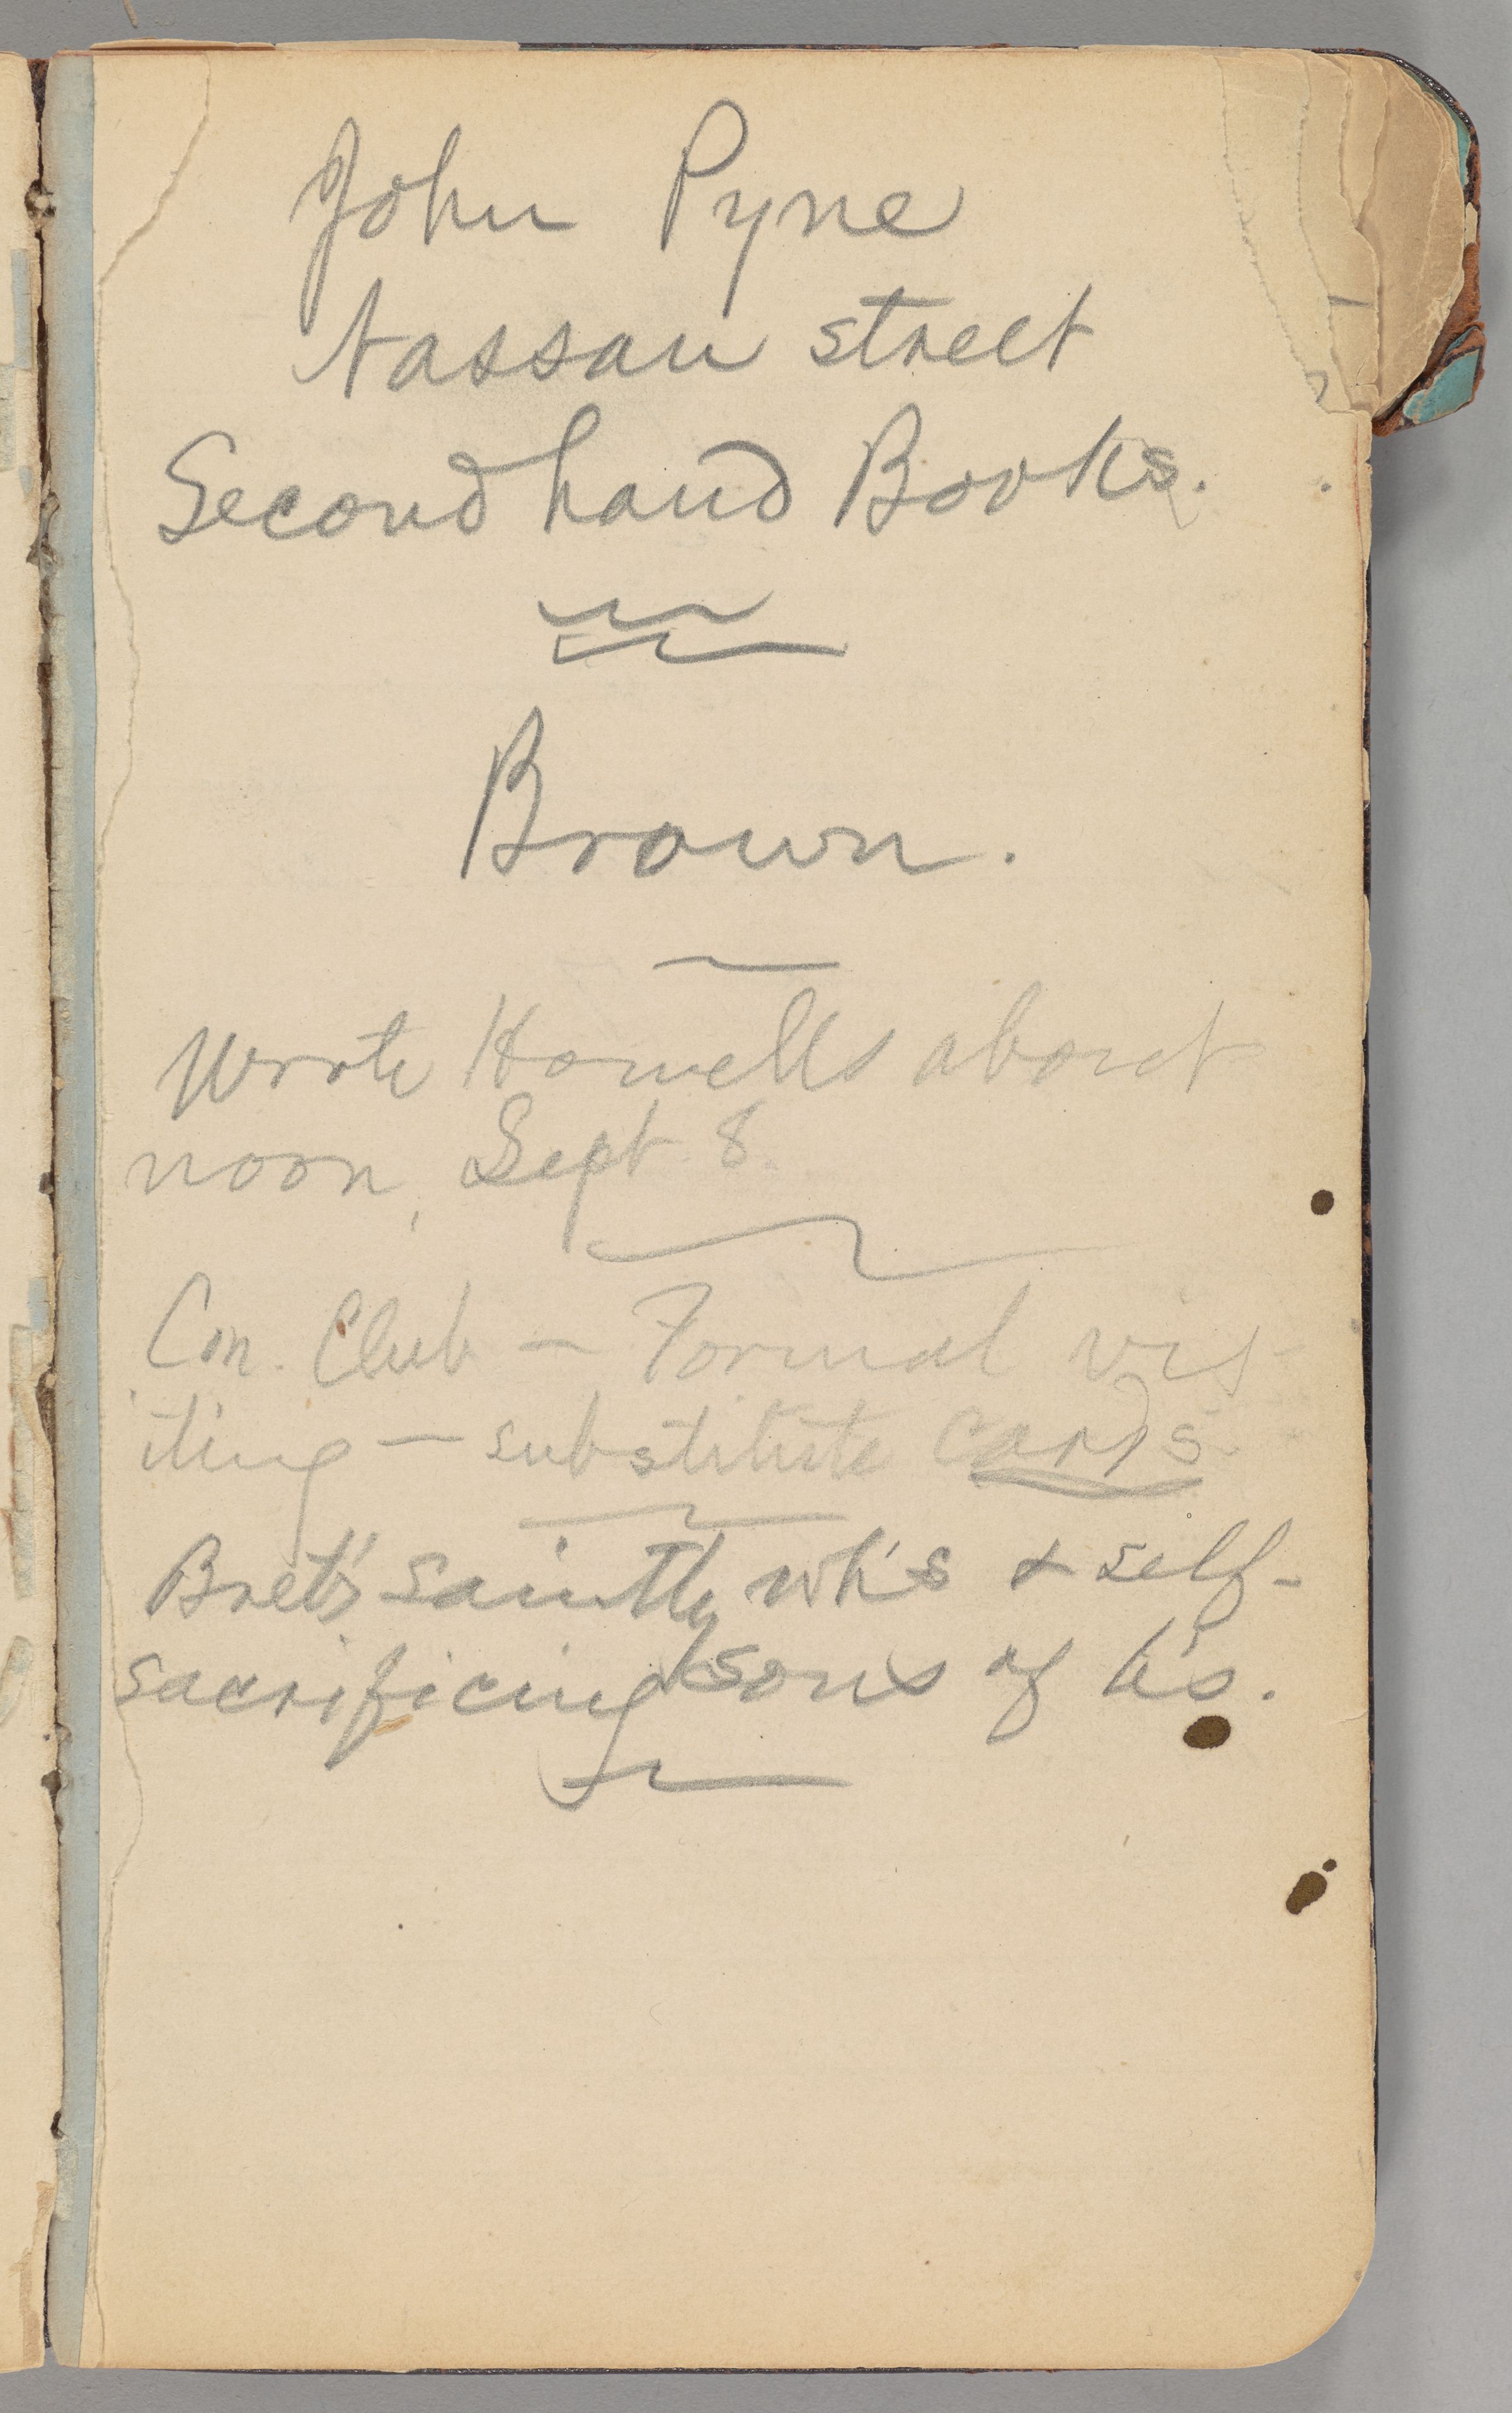 John Pyne
Nassau street
Second hand Books.
Brown.
Wrote Howells about
noon, Sept 8.
Con. Club — Formal vis-
iting — substitute cards.
Bret's saintly wh's & self-
sacrificing sons of b's.